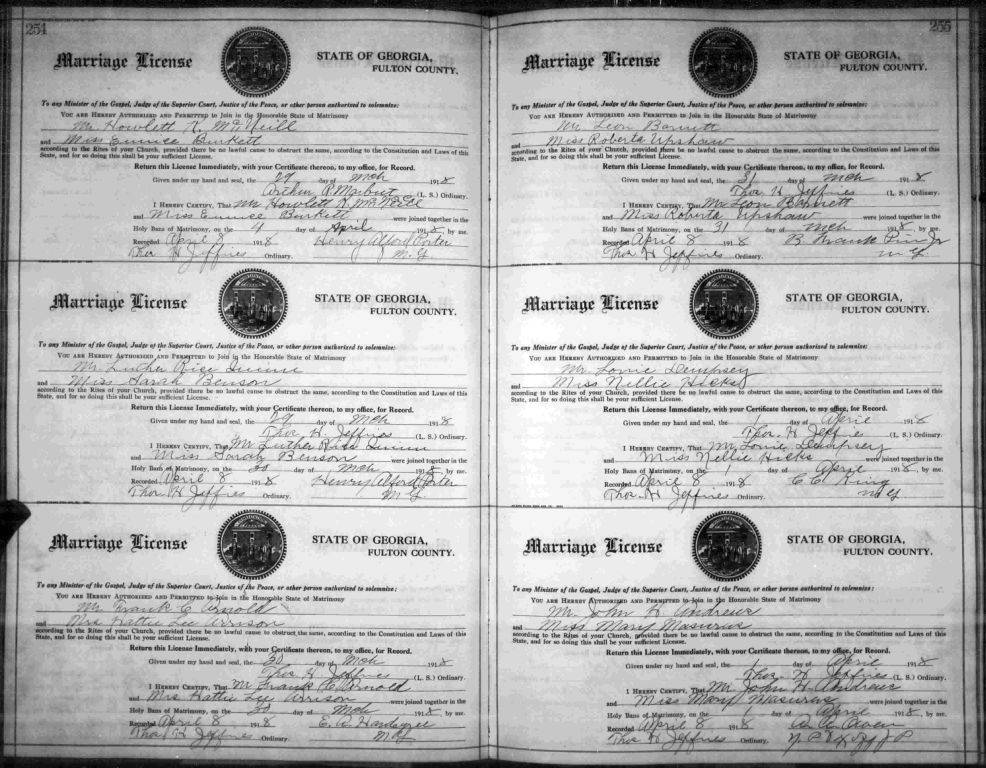 254
Marriage License
STATE OF GEORGIA,
FULTON COUNTY.
To any Minister of the Gospel, Judge of the Superior Court, Justice of the Peace, or other person authorized to solemnize:
YOU ARE HEREBY AUTHORIZED AND PERMITTED to Join in the Honorable State of Matrimony
Mr Howlett K. McNeill
and Miss Eunice Burkett
according to the Rites of your Church, provided there be no lawful cause to obstruct the same, according to the Constitution and Laws of this
State, and for so doing this shall be your sufficient License.
Return this License Immediately, with your Certificate thereon, to my office, for Record.
Given under my hand and seal, the 29 day of Mch 1918
Arthur R Marbut (L. S.) Ordinary.
I HEREBY CERTIFY, That Mr Howlett K McNeill
and Miss Eunice Burkett were joined together in the
Holy Bans of Matrimony, on the 4 day of April 1918, by me.
Recorded April 8 1918 Henry Alford Porter
Thos H Jeffries Ordinary. M. G.
Marriage License
STATE OF GEORGIA,
FULTON COUNTY.
To any Minister of the Gospel, Judge of the Superior Court, Justice of the Peace, or other person authorized to solemnize:
YOU ARE HEREBY AUTHORIZED AND PERMITTED to Join in the Honorable State of Matrimony
Mr Luther Rise
and Miss Sarah Benson
according to the Rites of your Church, provided there be no lawful cause to obstruct the same, according to the Constitution and Laws of this
State, and for so doing this shall be your sufficient License.
Return this License Immediately, with your Certificate thereon, to my office, for Record.
Given under my hand and seal, the 29 day of Mch 1918
Thos H Jeffries (L. S.) Ordinary.
I HEREBY CERTIFY, That Mr Luther Rise
and Miss Sarah Benson were joined together in the
Holy Bans of Matrimony, on the 30 day of Mch 1918, by me.
Recorded April 8 1918 Henry Alford Porter
Thos H Jeffries Ordinary. M. G.
Marriage License
STATE OF GEORGIA,
FULTON COUNTY.
To any Minister of the Gospel, Judge of the Superior Court, Justice of the Peace, or other person authorized to solemnize:
YOU ARE HEREBY AUTHORIZED AND PERMITTED to Join in the Honorable State of Matrimony
Mr Frank C Arnold
and Mrs Hattie Lee Arrison
according to the Rites of your Church, provided there be no lawful cause to obstruct the same, according to the Constitution and Laws of this
State, and for so doing this shall be your sufficient License.
Return this License Immediately, with your Certificate thereon, to my office, for Record.
Given under my hand and seal, the 30 day of Mch 1918
Thos H Jeffries (L. S.) Ordinary.
I HEREBY CERTIFY, That Mr Frank C Arnold
and Mrs Hattie Lee Arrison were joined together in the
Holy Bans of Matrimony, on the 30 day of Mch 1918, by me.
Recorded April 8 1918
Thos H Jeffries Ordinary. M G
255
Marriage License
STATE OF GEORGIA,
FULTON COUNTY.
To any Minister of the Gospel, Judge of the Superior Court, Justice of the Peace, or other person authorized to solemnize:
YOU ARE HEREBY AUTHORIZED AND PERMITTED to Join in the Honorable State of Matrimony
Mr Leon Barnett
and Miss Roberta Upshaw
according to the Rites of your Church, provided there be no lawful cause to obstruct the same, according to the Constitution and Laws of this
State, and for so doing this shall be your sufficient License.
Return this License Immediately, with your Certificate thereon, to my office, for Record.
Given under my hand and seal, the 31 day of Mch 1918
Thos. H Jeffries (L. S.) Ordinary.
I HEREBY CERTIFY, That Mr Leon Barnett
and Miss Roberta Upshaw were joined together in the
Holy Bans of Matrimony, on the 31 day of Mch 1918, by me.
Recorded April 8 1918 B. Frank
Thos H Jeffries Ordinary. M G.
Marriage License
STATE OF GEORGIA,
FULTON COUNTY.
To any Minister of the Gospel, Judge of the Superior Court, Justice of the Peace, or other person authorized to solemnize:
YOU ARE HEREBY AUTHORIZED AND PERMITTED to Join in the Honorable State of Matrimony
Mr Lonie Dempsey
and Miss Nellie Hicks
according to the Rites of your Church, provided there be no lawful cause to obstruct the same, according to the Constitution and Laws of this
State, and for so doing this shall be your sufficient License.
Return this License Immediately, with your Certificate thereon, to my office, for Record.
Given under my hand and seal, the 1 day of April 1918
Thos. H Jeffries (L. S.) Ordinary.
I HEREBY CERTIFY, That Mr Lonie Dempsey
and Miss Nellie Hicks were joined together in the
Holy Bans of Matrimony, on the day of April 1918, by me.
Recorded April 8 1918 C. C. King
Thos. H Jeffries Ordinary. M G
Marriage License
STATE OF GEORGIA,
FULTON COUNTY.
To any Minister of the Gospel, Judge of the Superior Court, Justice of the Peace, or other person authorized to solemnize:
YOU ARE HEREBY AUTHORIZED AND PERMITTED to Join in the Honorable State of Matrimony
Mr John H Andrews
and Miss Mary
according to the Rites of your Church, provided there be no lawful cause to obstruct the same, according to the Constitution and Laws of this
State, and for so doing this shall be your sufficient License.
Return this License Immediately, with your Certificate thereon, to my office, for Record.
Given under my hand and seal, the 1 day of April 1918
Thos. H Jeffries (L. S.) Ordinary.
I HEREBY CERTIFY, That Mr John H Andrews
and Miss Mary were joined together in the
Holy Bans of Matrimony, on the 1 day of April 1918, by me.
Recorded April 8 1918
Thos H Jeffries Ordinary.